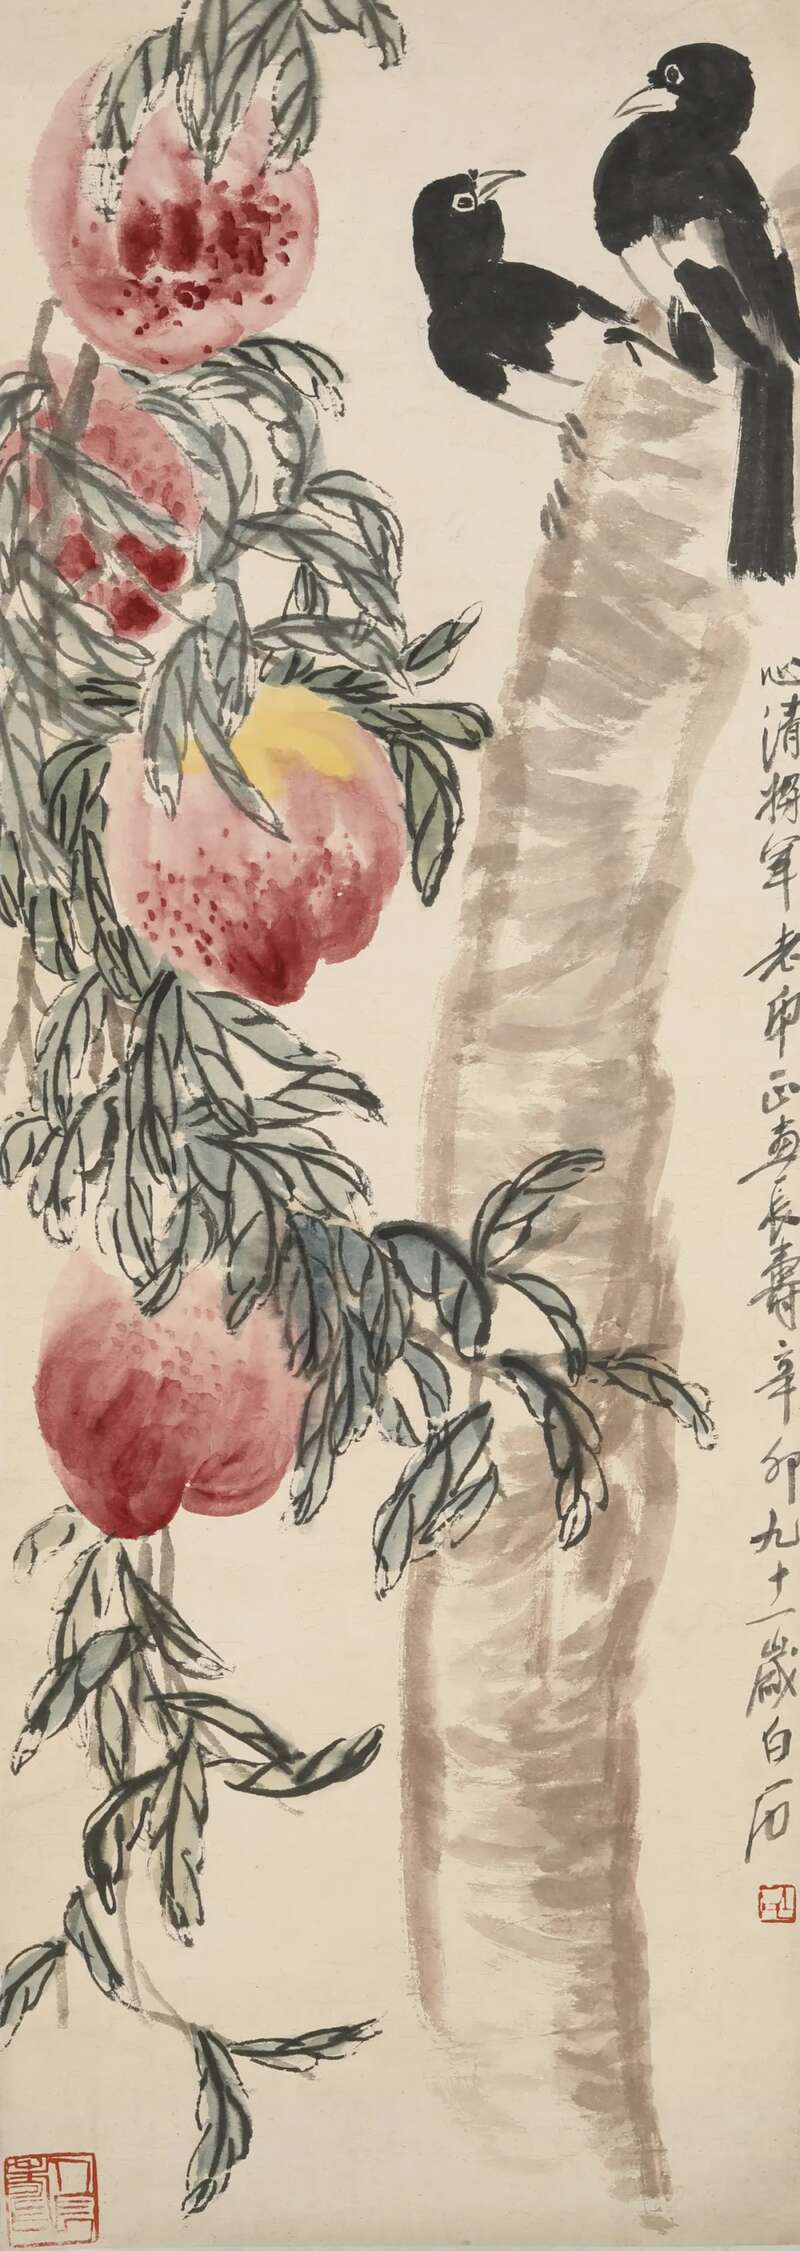 心清将军老弟正画长寿辛卯九十一岁白石
人长寿